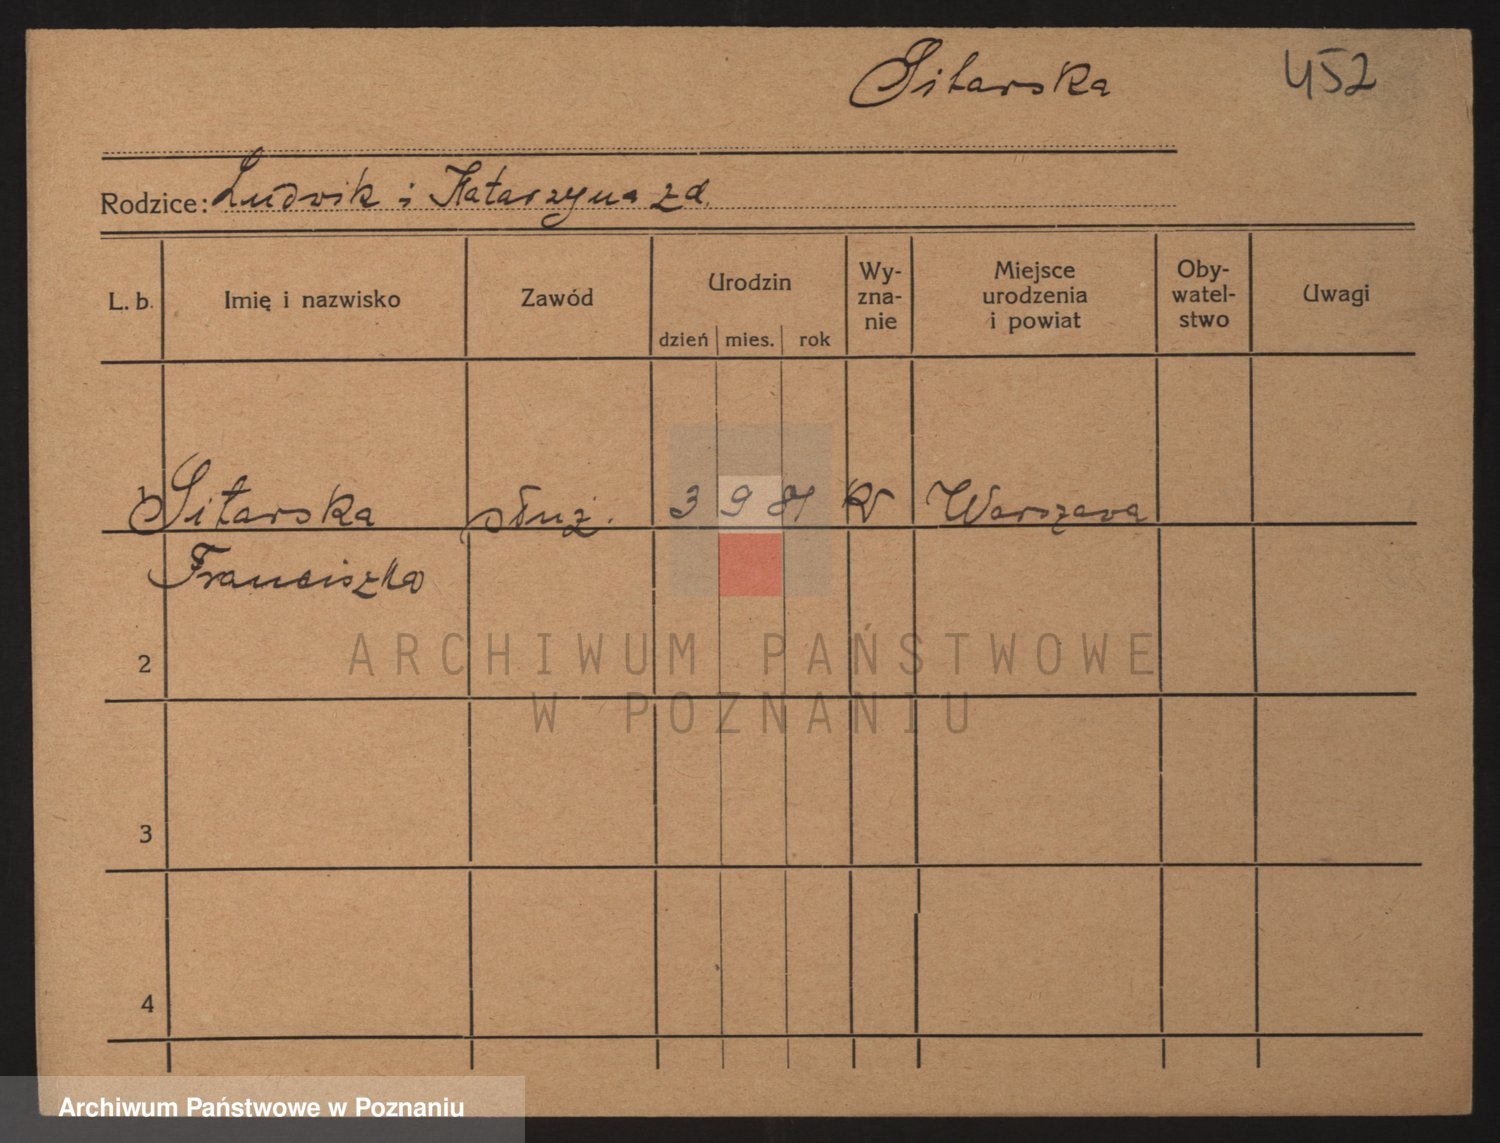 Sitarska 452
Rodzice: Ludwik i Katarzyna zd.
L. b. Imię i nazwisko Zawód Urodzin dzień mies. rok Wy- zna- nie Miejsce urodzenia i powiat Oby- watel- stwo Uwagi
1 Sitarska służ. 3 9 81 K Warszawa
Franciszka
2
ARCHIWUM PAŃSTWOWE
W POZNANIU
3
4
Archiwum Państwowe w Poznaniu